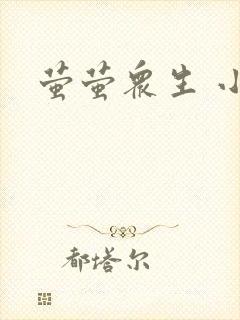 萤萤众生 小
都塔尔